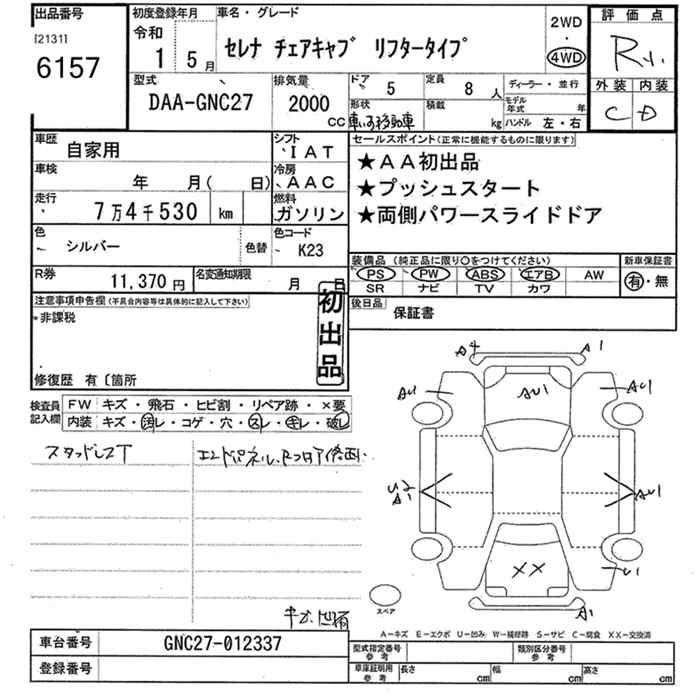 出品番号
[2131]
6157
初度登録年月
令和
1 5月
車名・グレード
セレナ チェアキャブ リフタータイプ
2WD
・
4WD
評価点
R
外装 内装
C D
型式
DAA-GNC27
排気量
2000
CC
ドア
5
定員
8人
ディーラー・並行
形状
車いす移動車
積載
kg
モデル年式
年
ハンドル 左・右
車歴
自家用
シフト
IAT
車検
年 月( 日)
冷房
AAC
走行
7万4千530 km
燃料
ガソリン
色
シルバー
色替
色コード
K23
R券
11,370円
名変通知期限
月 日
セールスポイント(正常に機能するものに限ります)
★AA初出品
★プッシュスタート
★両側パワースライドドア
装備品 (純正品に限り〇をつけてください)
新車保証書
PS PW ABS エアB AW
有・無
SR ナビ TV カワ
後日品
保証書
注意事項申告欄(不具合内容等は具体的に記入して下さい)
・非課税
初出品
修復歴 有〔箇所
検査員記入欄
FW キズ・飛石・ヒビ割・リペア跡・×要
内装 キズ・汚レ・コゲ・穴・スレ・キレ・破レ
スタッドレスT
エンドパネル、
A4
A1
AU1
AU1
AU1
U2
A1
AU1
XX
U1
A1
スペア
A-キズ E-エクボ U-凹み W-補修跡 S-サビ C-腐食 XX-交換済
車台番号
GNC27-012337
登録番号
型式指定番号
参考
類別区分番号
参考
車庫証明用
参考
長さ cm
幅 cm
高さ cm